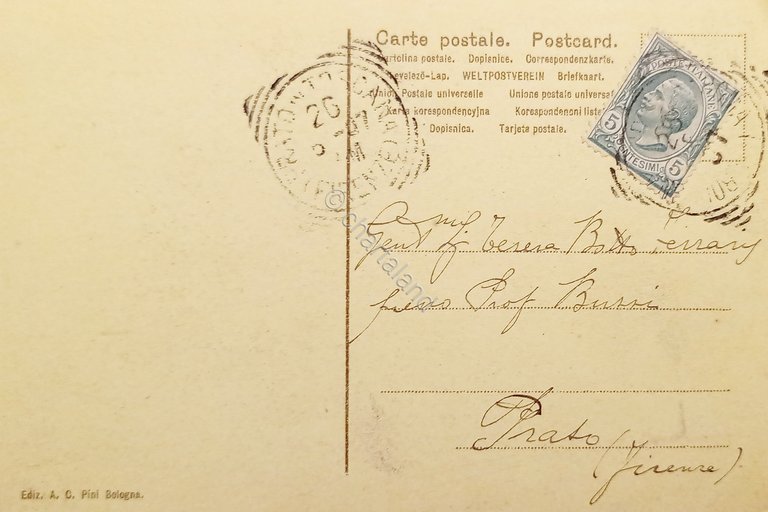 Carte postale. Postcard.
Cartolina postale. Dopisnice. Correspondenzkarte.
Levelező-Lap. WELTPOSTVEREIN Briefkaart.
Union Postale universelle Unione postale universal
Karta korespondencyjna Korespondencni listek
Dopisnica. Tarjeta postale.
POSTE ITALIANE
5 CENTESIMI 5
PRATO IN TOSCANA
(FIRENZE)
26
07
© chartaland
Gent Teresa
Prof
Prato
(Firenze)
Ediz. A. C. Pini Bologna.